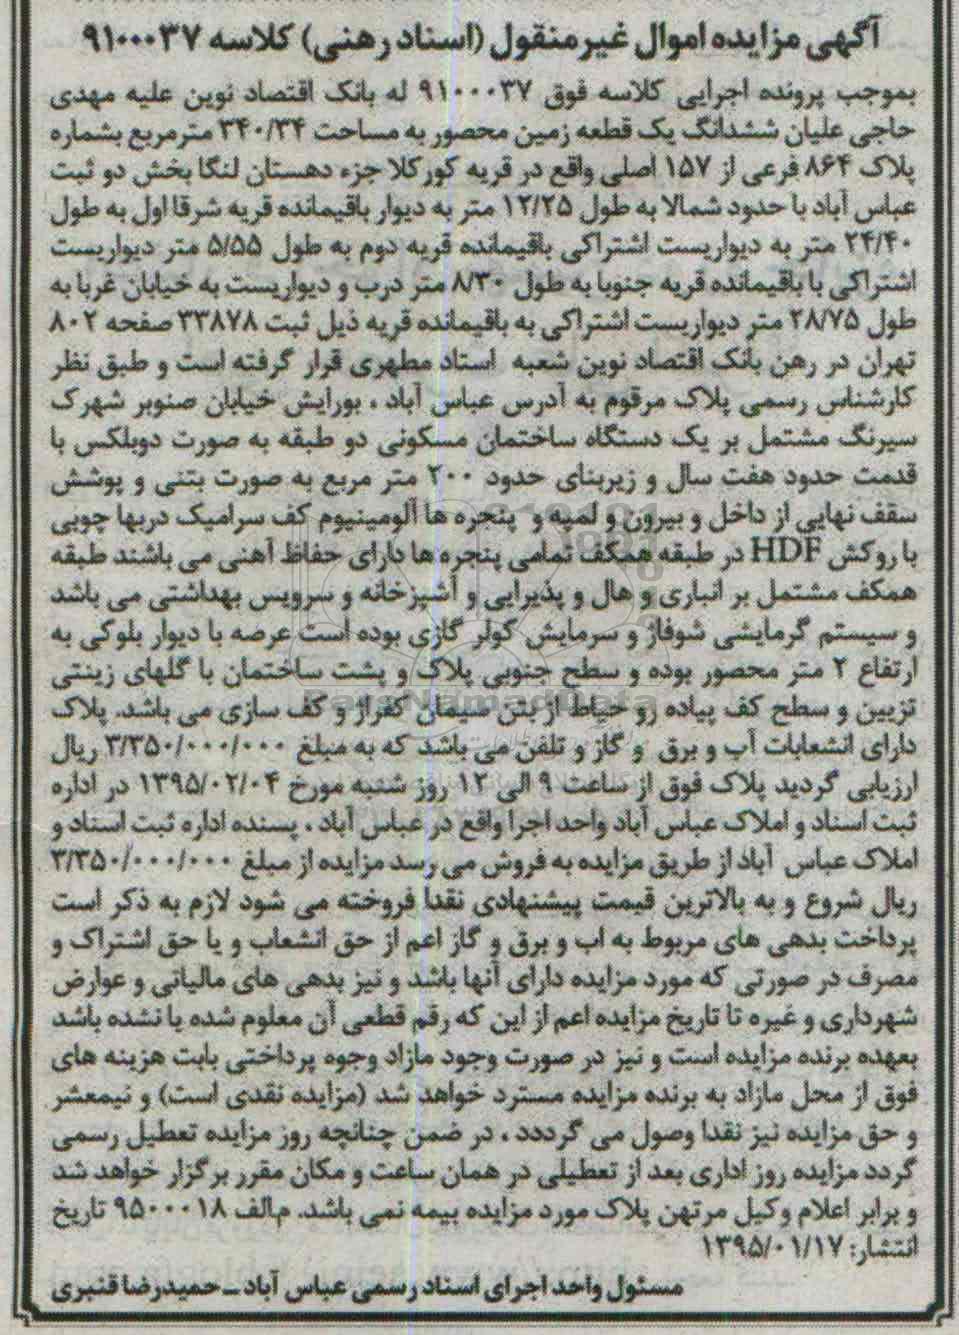 آگهی مزایده اموال غیرمنقول (اسناد رهنی) کلاسه ۹۱۰۰۰۳۷
بموجب پرونده اجرایی کلاسه فوق ۹۱۰۰۰۳۷ له بانک اقتصاد نوین علیه مهدی
حاجی علیان ششدانگ یک قطعه زمین محصور به مساحت ۳۴۰/۳۴ مترمربع بشماره
پلاک ۸۶۴ فرعی از ۱۵۷ اصلی واقع در قریه کورکلا جزء دهستان لنگا بخش دو ثبت
عباس آباد با حدود شمالا به طول ۱۲/۲۵ متر به دیوار باقیمانده قریه شرقا اول به طول
۲۴/۴۰ متر به دیواریست اشتراکی باقیمانده قریه دوم به طول ۵/۵۵ متر دیواریست
اشتراکی با باقیمانده قریه جنوبا به طول ۸/۳۰ متر درب و دیواریست به خیابان غربا به
طول ۲۸/۷۵ متر دیواریست اشتراکی به باقیمانده قریه ذیل ثبت ۳۳۸۷۸ صفحه ۸۰۲
تهران در رهن بانک اقتصاد نوین شعبه استاد مطهری قرار گرفته است و طبق نظر
کارشناس رسمی پلاک مرقوم به آدرس عباس آباد ، بورایش خیابان صنوبر شهرک
سیرنگ مشتمل بر یک دستگاه ساختمان مسکونی دو طبقه به صورت دوبلکس با
قدمت حدود هفت سال و زیربنای حدود ۲۰۰ متر مربع به صورت بتنی و پوشش
سقف نهایی از داخل و بیرون و لمپه و پنجره ها آلومینیوم کف سرامیک دربها چوبی
با روکش HDF در طبقه همکف تمامی پنجره ها دارای حفاظ آهنی می باشند طبقه
همکف مشتمل بر انباری و هال و پذیرایی و آشپزخانه و سرویس بهداشتی می باشد
و سیستم گرمایشی شوفاژ و سرمایش کولر گازی بوده است عرصه با دیوار بلوکی به
ارتفاع ۲ متر محصور بوده و سطح جنوبی پلاک و پشت ساختمان با گلهای زینتی
تزیین و سطح کف پیاده رو حیاط از بتن سیمان کفراز و کف سازی می باشد. پلاک
دارای انشعابات آب و برق و گاز و تلفن می باشد که به مبلغ ۳/۳۵۰/۰۰۰/۰۰۰ ریال
ارزیابی گردید پلاک فوق از ساعت ۹ الی ۱۲ روز شنبه مورخ ۱۳۹۵/۰۲/۰۴ در اداره
ثبت اسناد و املاک عباس آباد واحد اجرا واقع در عباس آباد ، پسنده اداره ثبت اسناد و
املاک عباس آباد از طریق مزایده به فروش می رسد مزایده از مبلغ ۳/۳۵۰/۰۰۰/۰۰۰
ریال شروع و به بالاترین قیمت پیشنهادی نقدا فروخته می شود لازم به ذکر است
پرداخت بدهی های مربوط به اب و برق و گاز اعم از حق انشعاب و یا حق اشتراک و
مصرف در صورتی که مورد مزایده دارای آنها باشد و نیز بدهی های مالیاتی و عوارض
شهرداری و غیره تا تاریخ مزایده اعم از این که رقم قطعی آن معلوم شده یا نشده باشد
بعهده برنده مزایده است و نیز در صورت وجود مازاد وجوه پرداختی بابت هزینه های
فوق از محل مازاد به برنده مزایده مسترد خواهد شد (مزایده نقدی است) و نیمعشر
و حق مزایده نیز نقدا وصول می گرددد ، در ضمن چنانچه روز مزایده تعطیل رسمی
گردد مزایده روز اداری بعد از تعطیلی در همان ساعت و مکان مقرر برگزار خواهد شد
و برابر اعلام وکیل مرتهن پلاک مورد مزایده بیمه نمی باشد. م.الف ۹۵۰۰۰۱۸ تاریخ
انتشار: ۱۳۹۵/۰۱/۱۷
مسئول واحد اجرای اسناد رسمی عباس آباد ــ حمیدرضا قنبری